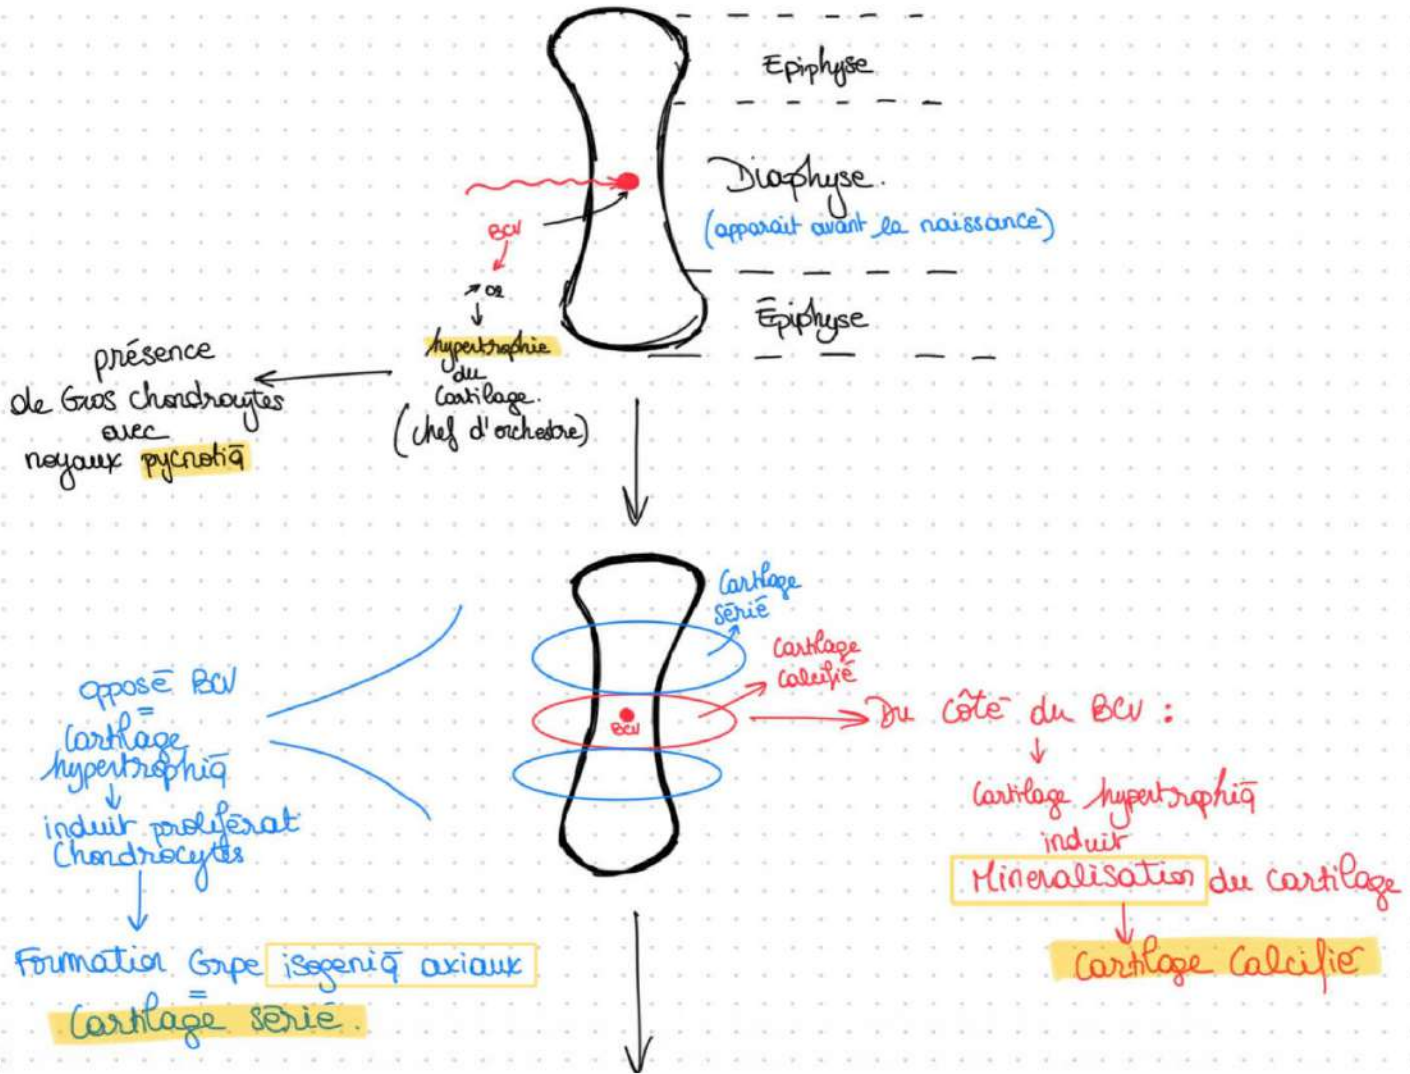 Epiphyse
Diaphyse.
(apparait avant la naissance)
BCV
↗ O2
↓
hypertrophie
du
Cartilage.
(chef d'orchestre)
présence
de Gros chondrocytes
avec
noyaux pycnotiq̄
Épiphyse
Cartilage
sérié
Cartilage
calcifié
BCV
opposé BCV
=
Cartilage
hypertrophiq̄
↓
induit proliférat
Chondrocytes
Formation Grpe isogéniq̄ axiaux
=
Cartilage sérié.
Du côté du BCV :
Cartilage hypertrophiq̄
induit
Mineralisation du cartilage
Cartilage Calcifié